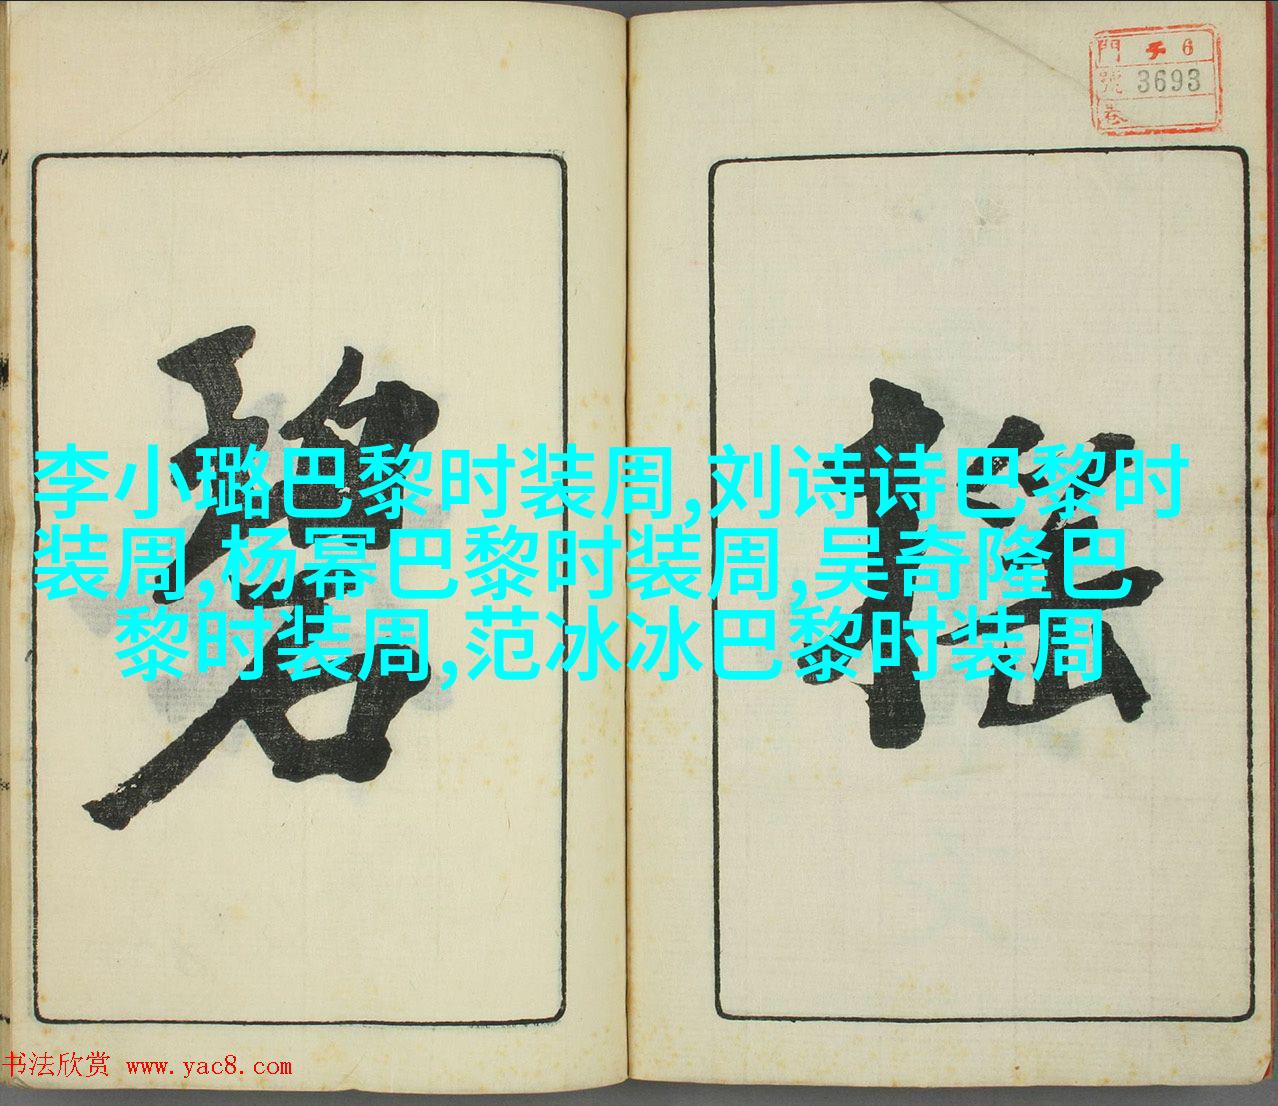 門 チ 6
號 3693
卷
松
碧
李小璐巴黎时装周,刘诗诗巴黎时
装周,杨幂巴黎时装周,吴奇隆巴
黎时装周,范冰冰巴黎时装周
书法欣赏 www.yac8.com